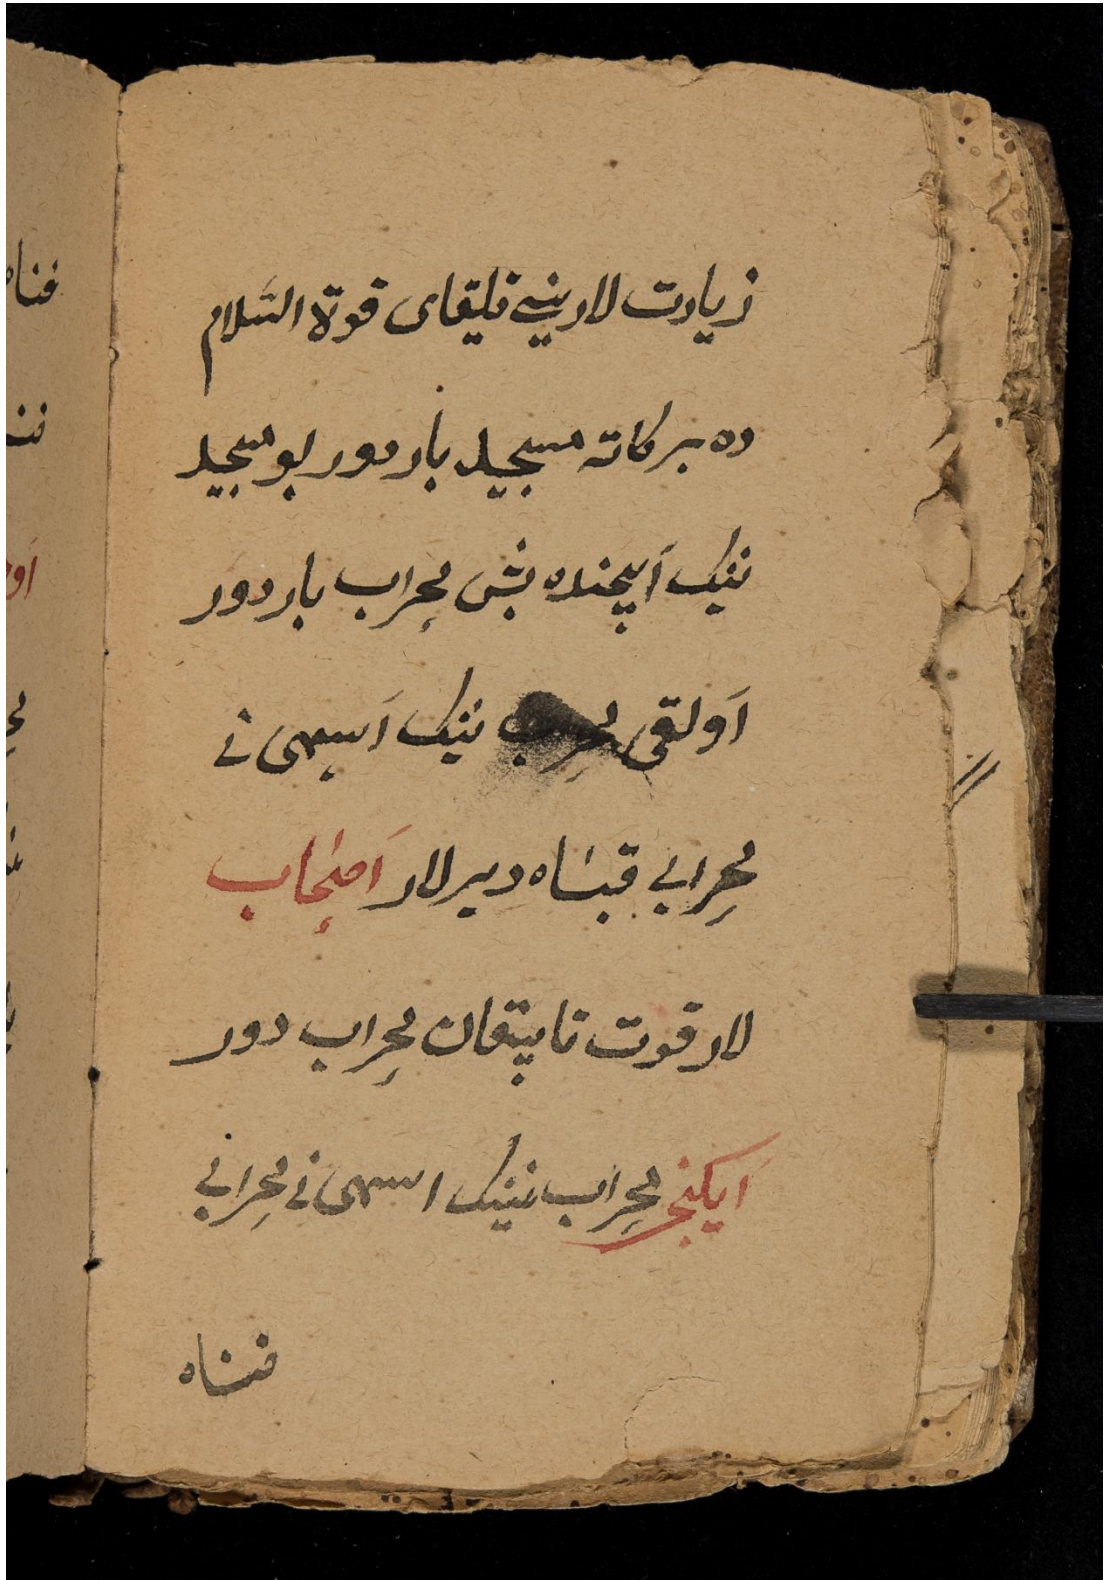 زیارت لارینی قلیقای قوة السّلام
ده برکاته مسجید بار دور بو مسجید
نینک اَیچنده بش محِراب بار دور
اَولقی محِراب نینک اَسِمی نی
محِرابی قبَاه دِیرلار اَصْحٰاب
لار قوت تاپتقان محِراب دور
اَیکنجی محِراب نینک اسمی نی محِرابی
فنَاه